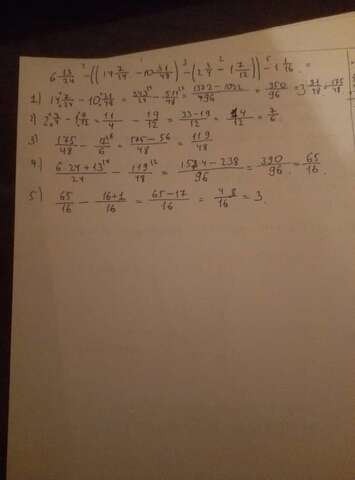 6 13/24 - ((14 7/24 - 10 31/48) - (2 3/4 - 1 7/12)) - 1 1/16 =
1) 14 7/24 - 10 31/48 = 343/24 - 511/48 = 1372 - 1022/496 = 350/96 = 3 31/48 = 175/48
2) 2 3/4 - 1 7/12 = 11/4 - 19/12 = 33-19/12 = 14/12 = 7/6
3) 175/48 - 7/6 = 175-56/48 = 119/48
4) 6·24+13/24 - 119/48 = 1574-238/96 = 390/96 = 65/16
5) 65/16 - 16+1/16 = 65-17/16 = 48/16 = 3.